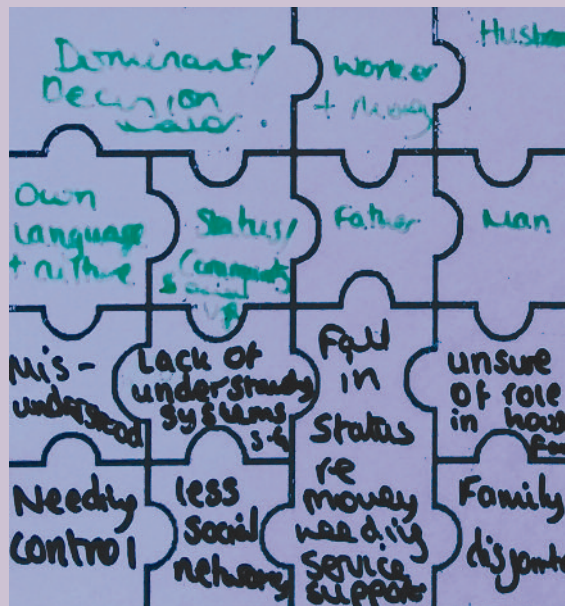 Dominant/
Decision
maker
Worker
+ Money
Husban
Own
language
+ culture
Status/
Community
Father
Man
Mis-
understood
Lack of
understandg
systems
Fall
in
Status
re
money
needing
service
support
unsure
of role
in hous
Needing
control
less
social
networks
Family
disjointe